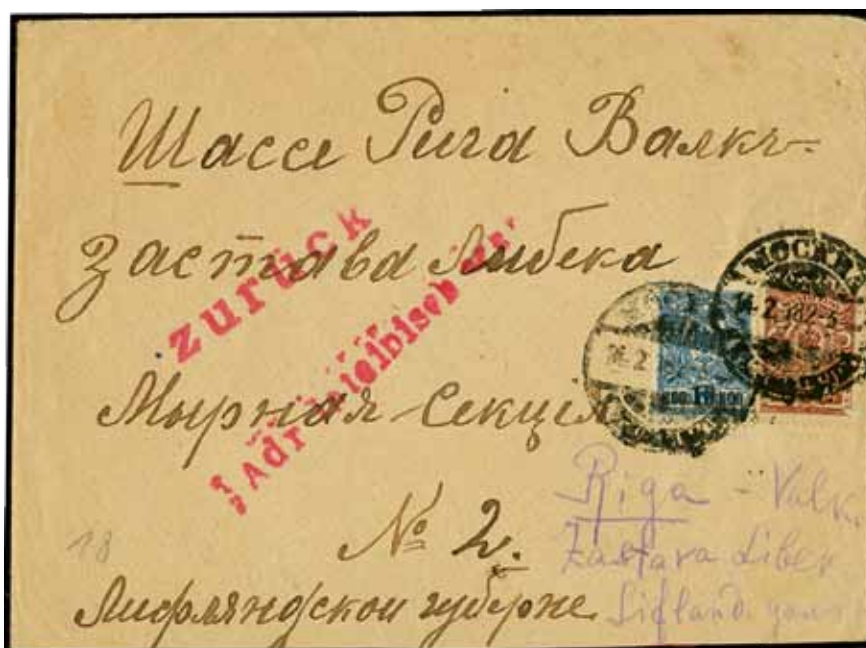 Шассе Рига Валкъ-
Застава Либека
Мырная-Секціи
№ 2.
Лифляндскои губерне
zurück
МОСКВА
18
Riga - Valk
Zastava Liber
Lifland. gouv